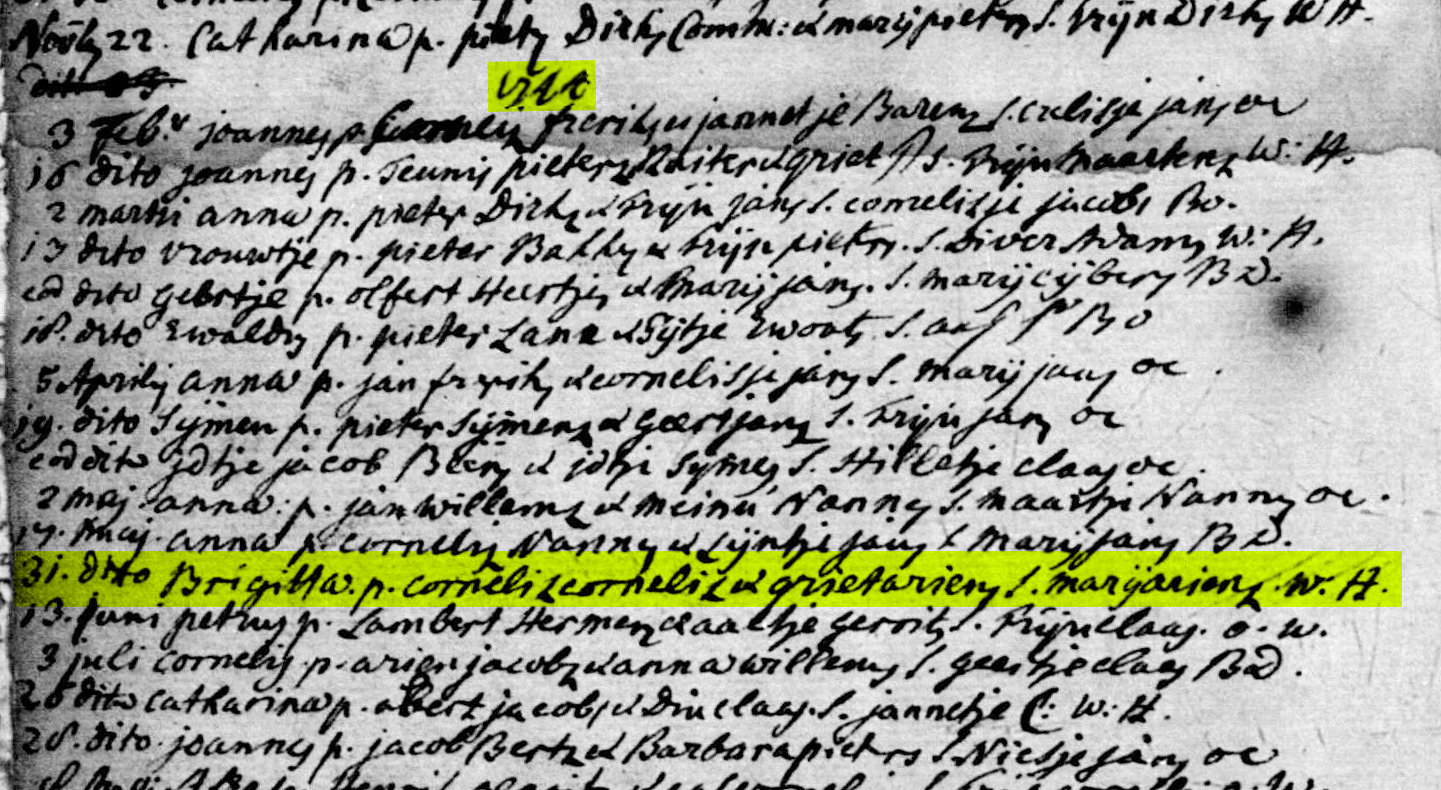 Novb 22. Catharina p. pietr Dirks Comm: & marij pieters S. Trijn Dirks W H.
dito
1744
3 Feb.r joannes p. frerikz & jannetje Barenz S. jans oc
16 dito joannes p. Teunis pieterz Ruiter & griet S. Trijn Maertens W: H.
2 martii anna p. pieter Dirkz & Trijn jans S. cornelisje jacobs Bo.
13 dito vrouwtje p. pieter Bakk & Trijn pieters. S. Diver Adams W: H.
eod dito gebrtje p. olfert Heertjes & Marij jans. S. marij cijbers B D.
18. dito Ewaldus p. pieter Lane & Tijtje Ewouts S. Bo
5 Aprilis anna p. jan frerikz & cornelisje jans S. marij jans oc
19. dito Sijmen p. pieter Sijmenz & Geert janz S. Trijn jans oc
eod dito jdtje jacob & jdtje Sijmes S. Hilletje claas oc.
2 maj anna. p. jan willemz & meinu Nannes S. maertje Nannes oc.
17. maij. anna p. cornelis Nannes & Lijntje jans S marij jans B D.
31. dito Brigitta. p. cornelis cornelisz & griet ariens S. marij ariens. w. H.
13. juni petrus p. Lambert Hermenz & aaltje gerrits S. Trijn claas. o. w.
3 juli cornelis. p. arien jacobz & anna willems S. geertje claas Bad.
26 dito catharina p. albert jacobs & Diu claas. S. jannetje C: w. H.
28. dito. joannes p. jacob Bertz & Barbara pieters S. Niesje jans oc